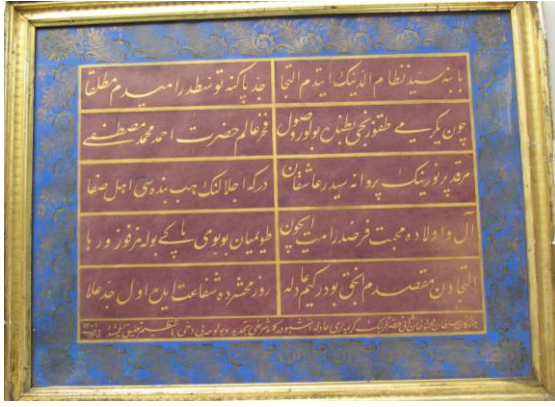 بابنه سید نظام الدینك ایتدم التجا جد پاکنه توسطدر امیدم مطلقا
چون یکرمی طقوزنجی بطنده بولور وصول فخر عالم حضرت احمد محمد مصطفی
مرقد پرنورینك پروانه سیدر عاشقان درکه اجلالنك هب بنده سی اهل صفا
آل و اولاده محبت فرضدر امت ایچون طویمیان بو بوی پاکی بوله مز فوز و رها
التجادن مقصدم انجق بودر کیم عادله روز محشرده شفاعت ایده اول جد علا
سلطان محمود خان ثانی عادله تعلیق